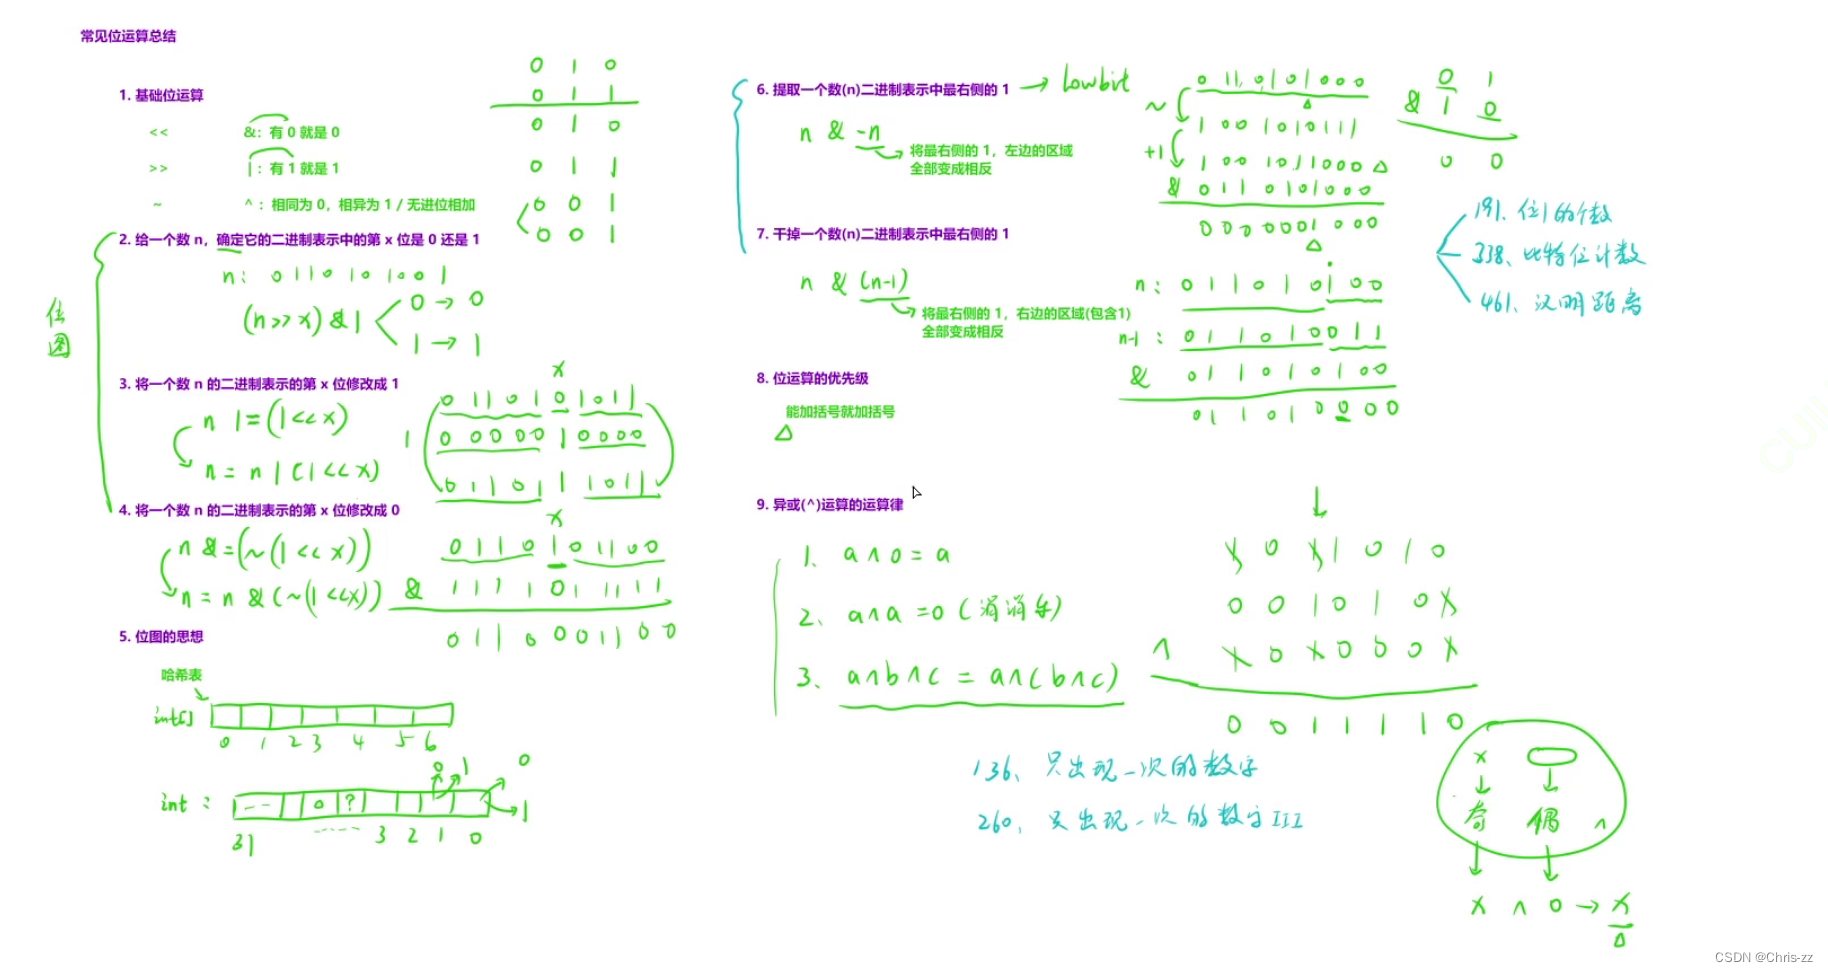 常见位运算总结
1. 基础位运算
<<
&: 有 0 就是 0
>>
|: 有 1 就是 1
~
^ : 相同为 0, 相异为 1 / 无进位相加
0 1 0
0 1 1
0 1 0
0 1 1
0 0 1
0 0 1
2. 给一个数 n, 确定它的二进制表示中的第 x 位是 0 还是 1
n: 0 1 1 0 1 0 1 0 0 1
(n >> x) & 1
0 → 0
1 → 1
位图
3. 将一个数 n 的二进制表示的第 x 位修改成 1
n |= (1 << x)
n = n | (1 << x)
x
0 1 1 0 1 0 1 0 1 1
| 0 0 0 0 0 1 0 0 0 0
0 1 1 0 1 1 1 0 1 1
4. 将一个数 n 的二进制表示的第 x 位修改成 0
n &= (~(1 << x))
n = n & (~(1 << x))
x
0 1 1 0 1 0 1 1 0 0
& 1 1 1 1 0 1 1 1 1 1
0 1 1 0 0 0 1 1 0 0
5. 位图的思想
哈希表
int[]
0 1 2 3 4 5 6
int :
0 ?
0 1
0
1
31 3 2 1 0
6. 提取一个数(n)二进制表示中最右侧的 1 → lowbit
n & -n
将最右侧的 1, 左边的区域
全部变成相反
0 1 1 0 1 0 1 0 0 0
~ 1 0 0 1 0 1 0 1 1 1
+1 1 0 0 1 0 1 1 0 0 0
& 0 1 1 0 1 0 1 0 0 0
0 0 0 0 0 0 1 0 0 0
0 1
& 1 0
0 0
7. 干掉一个数(n)二进制表示中最右侧的 1
n & (n-1)
将最右侧的 1, 右边的区域(包含1)
全部变成相反
n : 0 1 1 0 1 0 1 0 0
n-1 : 0 1 1 0 1 0 0 1 1
& 0 1 1 0 1 0 1 0 0
0 1 1 0 1 0 0 0 0
191、位1的个数
338、比特位计数
461、汉明距离
8. 位运算的优先级
能加括号就加括号
9. 异或(^)运算的运算律
1、 a ^ 0 = a
2、 a ^ a = 0 (消消乐)
3、 a ^ b ^ c = a ^ (b ^ c)
0 1 0 1 0
0 0 1 0 1 0
^ 0 0 0 0
0 0 1 1 1 1 0
136、只出现一次的数字
260、只出现一次的数字 III
x
奇 偶 ^
x ^ 0 → x
CSDN @Chris-zz